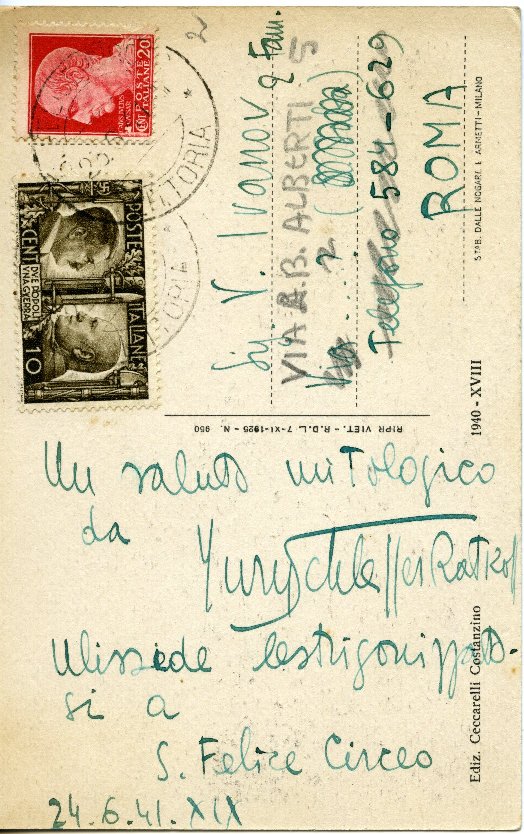 POSTE ITALIANE
CENT. 20
POSTE ITALIANE
CENT. 10
DVE POPOLI
VNA GVERRA
VITTORIA
VITTORIA
Sig. V. Ivanov e Fam.
VIA L.B. ALBERTI 5
Via ... 2
Telefono 584-629
ROMA
STAB. DALLE NOGARE E ARMETTI - MILANO
RIPR VIET. - R.D.L. 7-XI-1925 - N. 950
1940 - XVIII
Un saluto mitologico
da
Yury
Ulisse de
si a
S. Felice Circeo
24.6.41. XIX
Ediz. Ceccarelli Costanzino